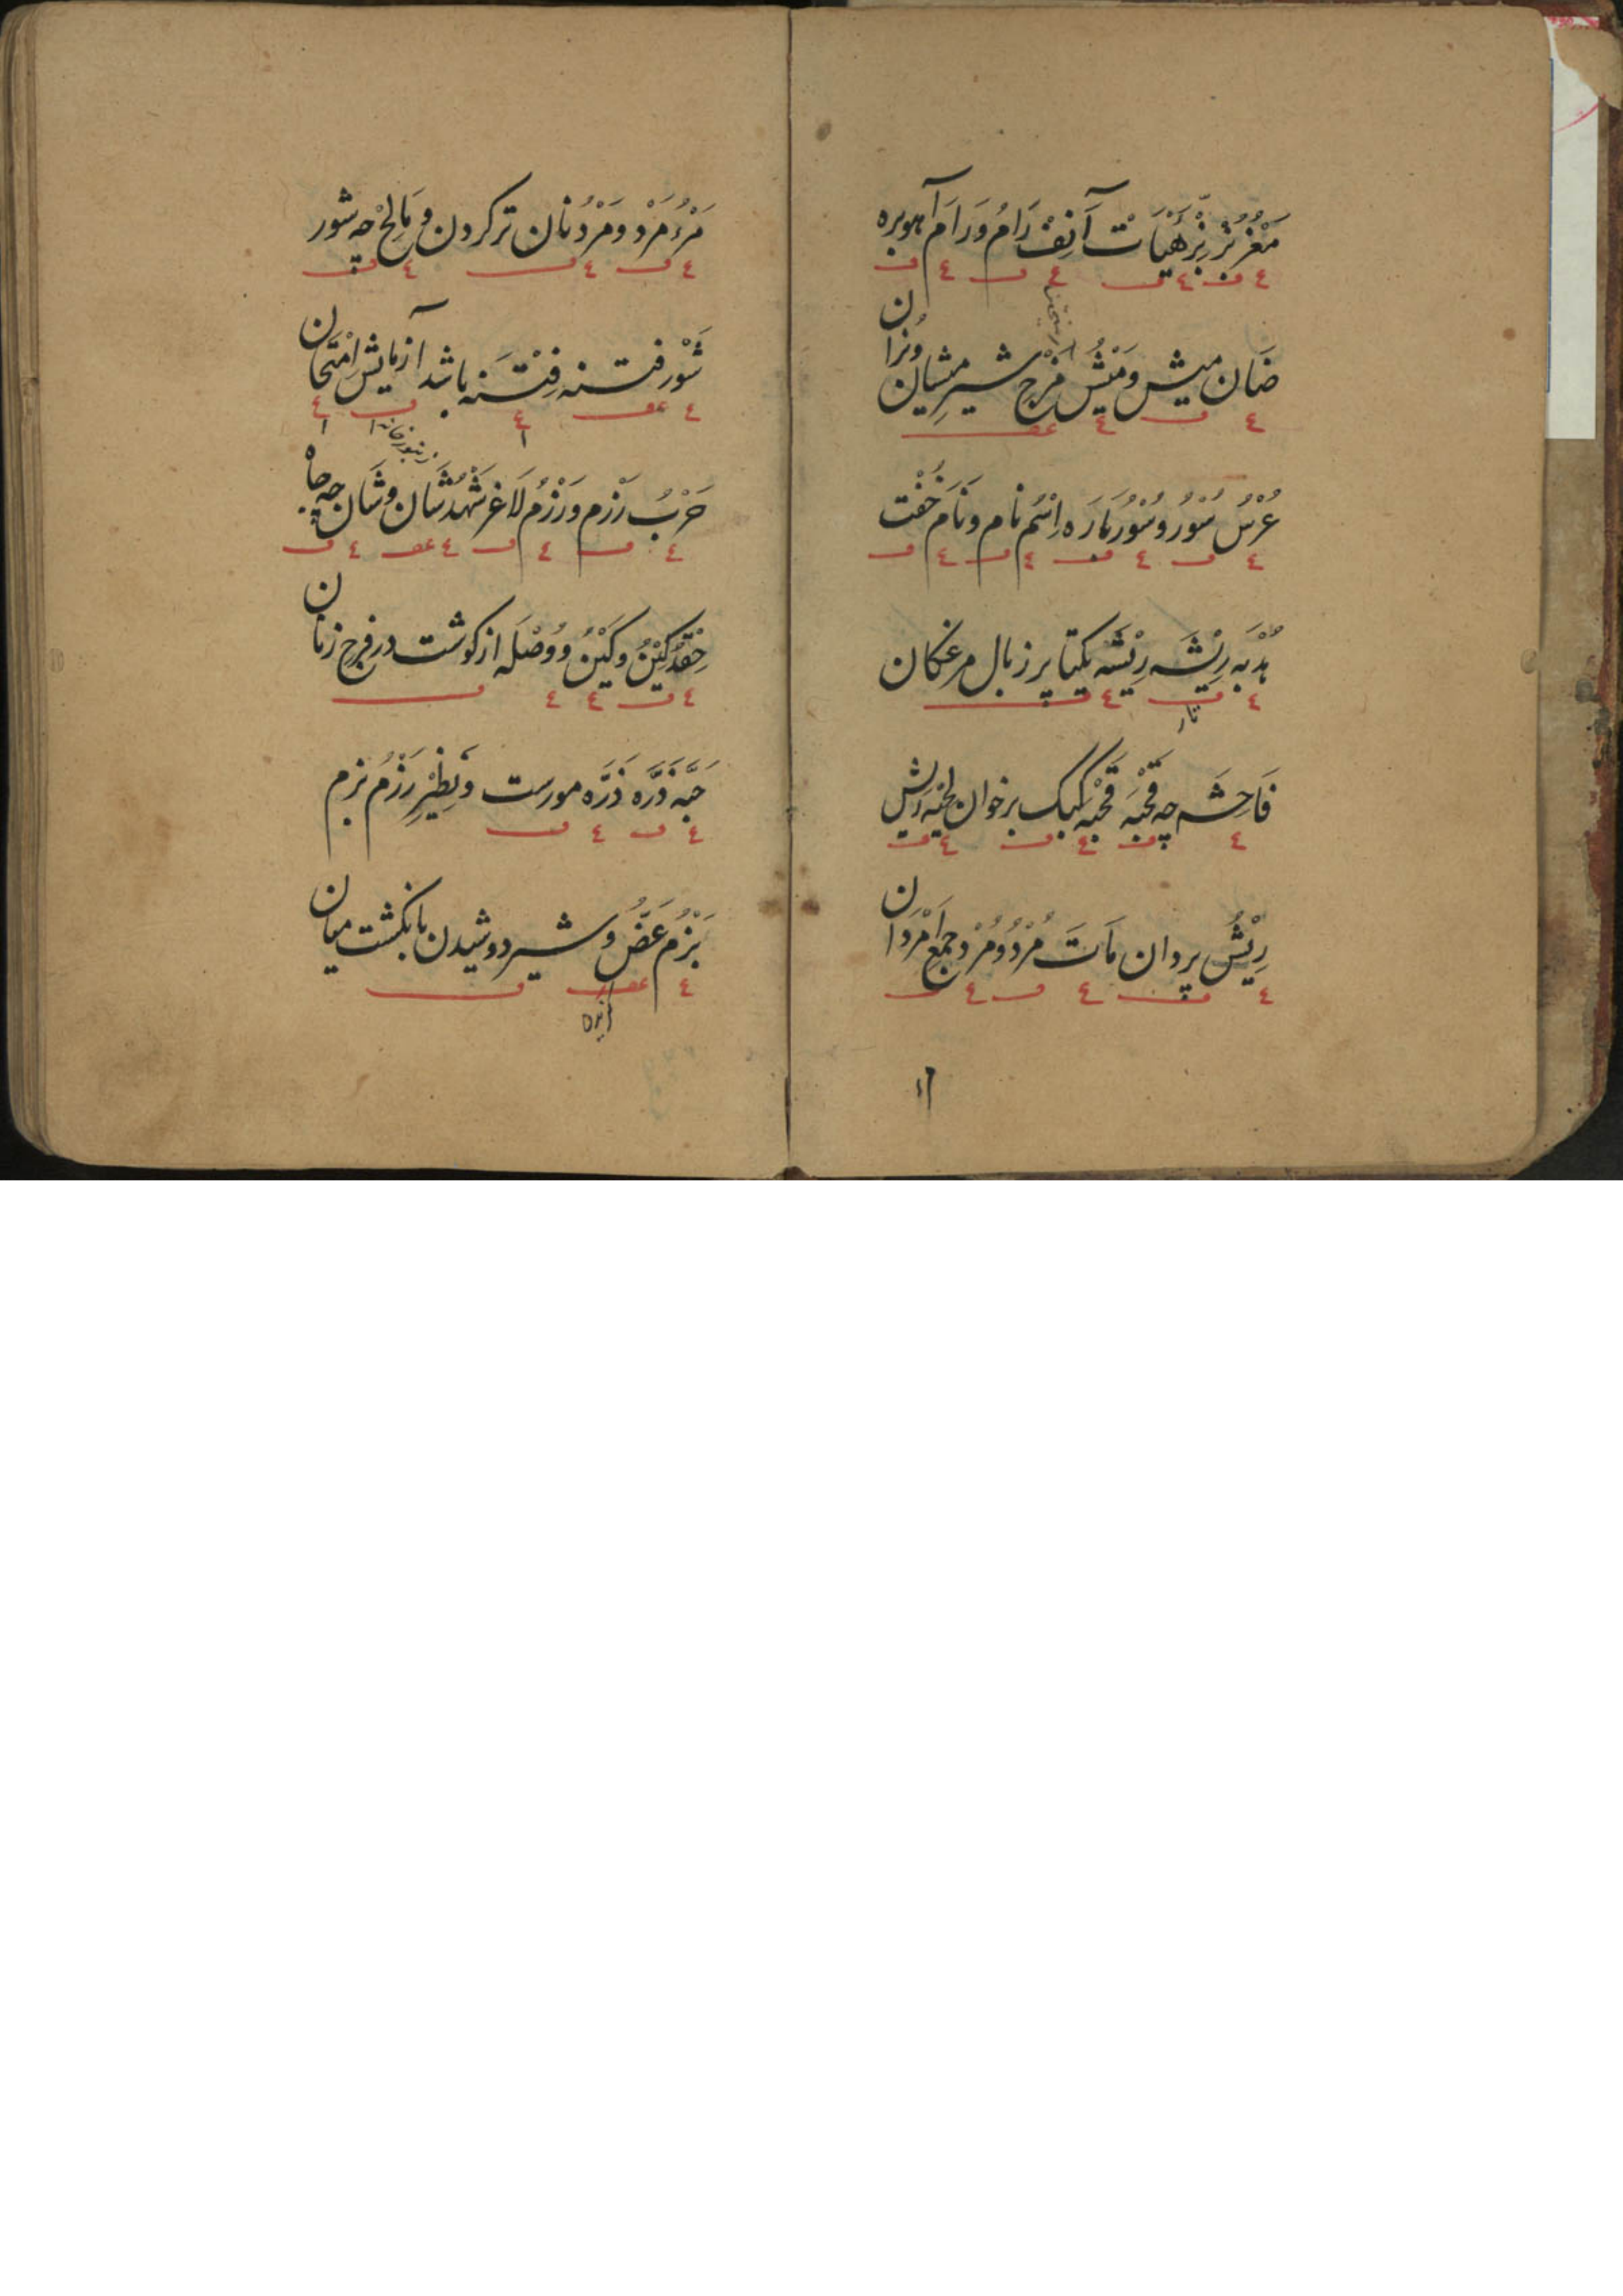 مَعْزُ بُز بِزّ هَيْأَت آنِفْ رَامُ وَرَامَ آهوبره
ضَان ميش وَمَيْشُ مَزْجِ شير ميشان وبُزان
عُرْسُ سُوْر وسُوْرُ بَارَه اِسْم نام ونَامَ خُفْت
هُدْبَه رِيْشَه رِيْشَه يكتا پر ز بال مرغكان
فَاحِشَه چه قَحْبَه قَحْبَه كبك برخوان لحيه ريش
رِيْشُ پردان مَاتَ مُرْدُ ومُرْد جمع اَمْرَدان
مَرْءُ مَرْد ومَرْدُ نان تر كردن و مَالِحْ چه شور
شَوْر فتنه فِتْنَه باشد آزمايش اِمْتِحان
حَرْبُ رَزْم ورَزْمُ لَاغر شَهْدُ شَان وشَان چه جاه
حِقْدُ كِيْنُ وكَيْنُ ووُصْلَه از كوشت در فرج زنان
حَبَّه ذَرَّه ذَرَّه مورست ونَظِيْرِ رَزْمُ بزم
بَزْمُ عَضُّ وشير دوشيدن بانكشت ميان